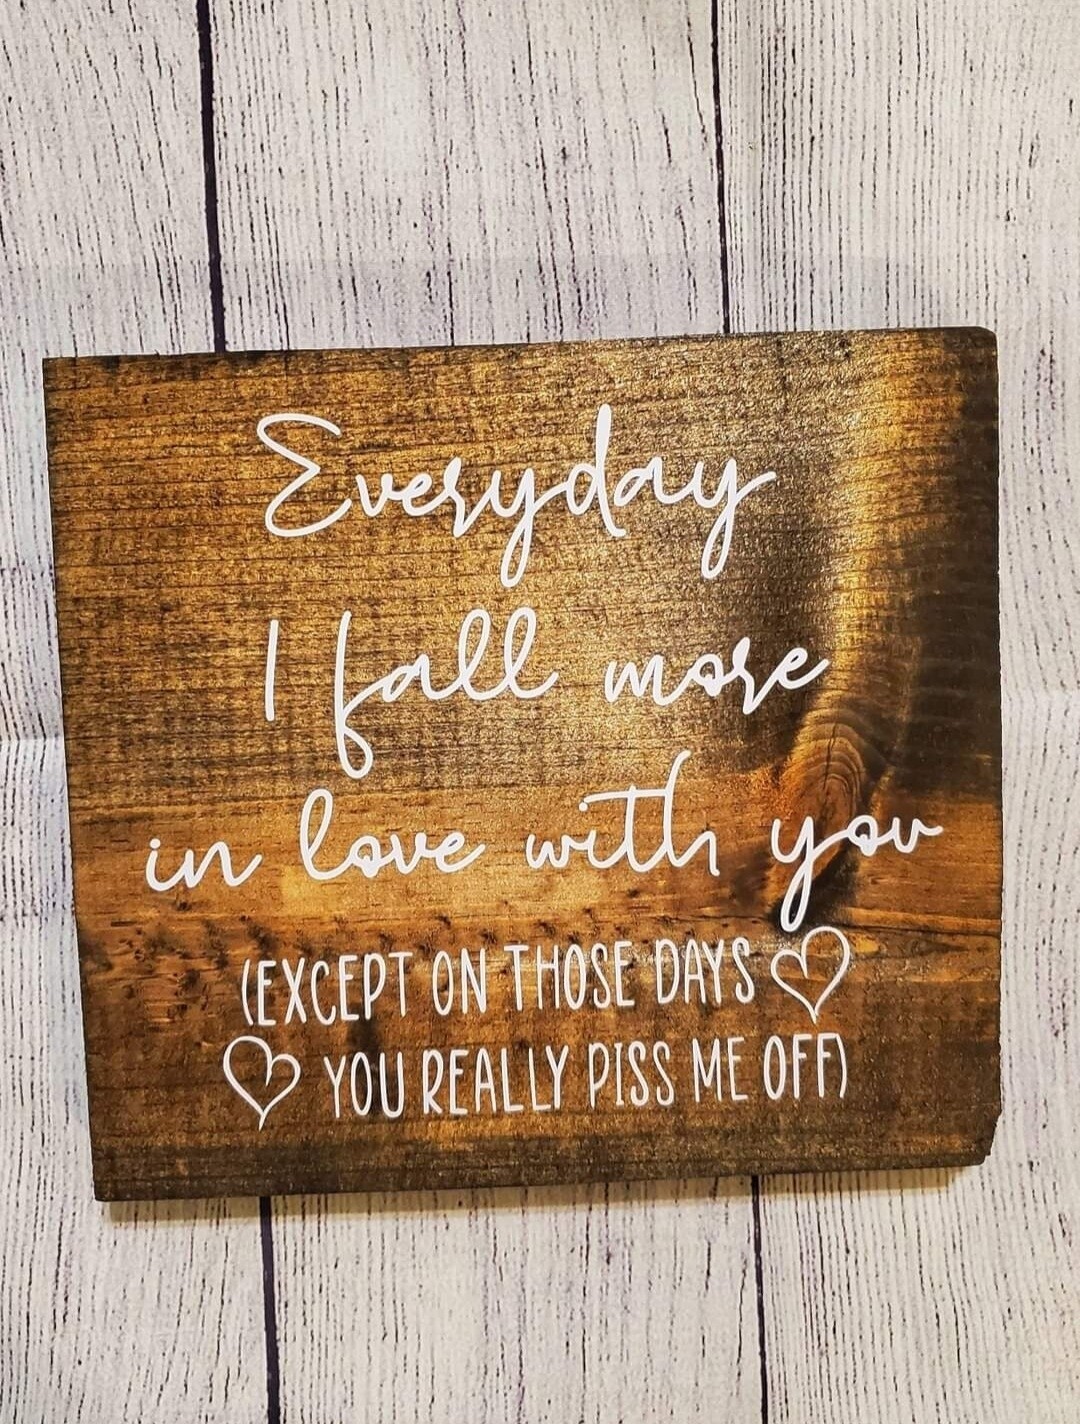 Everyday
I fall more
in love with you
(EXCEPT ON THOSE DAYS
YOU REALLY PISS ME OFF)